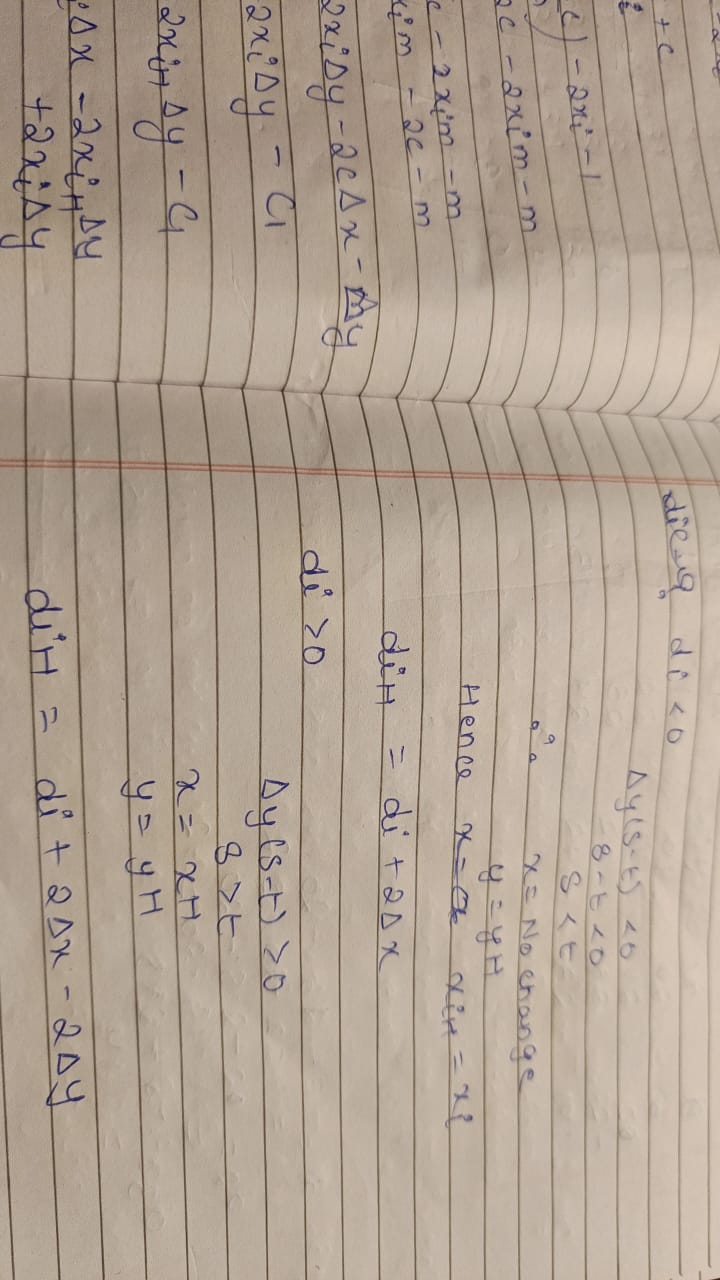 + c
i
c) - 2xi - 1
2c - 2xim - m
c - 2xim - m
xim - 2c - m
2xiΔy - 2cΔx - Δy
2xiΔy - C1
2xi+1 Δy - C1
iΔx - 2xi+1Δy
+2xiΔy
di < 0
Δy(s-t) < 0
s - t < 0
s < t
∴ x = No change
y = y+1
Hence xi+1 = xi
di+1 = di + 2Δx
di > 0
Δy(s-t) > 0
s > t
x = x+1
y = y+1
di+1 = di + 2Δx - 2Δy